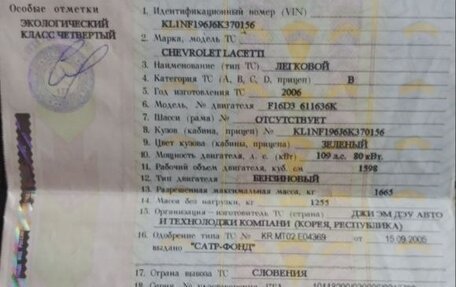 Особые отметки
ЭКОЛОГИЧЕСКИЙ
КЛАСС ЧЕТВЕРТЫЙ
1. Идентификационный номер (VIN)
KL1NF196J6K370156
2. Марка, модель ТС
CHEVROLET LACETTI
3. Наименование (тип ТС) ЛЕГКОВОЙ
4. Категория ТС (A, B, C, D, прицеп) B
5. Год изготовления ТС 2006
6. Модель, № двигателя F16D3 611636K
7. Шасси (рама) № ОТСУТСТВУЕТ
8. Кузов (кабина, прицеп) № KL1NF196J6K370156
9. Цвет кузова (кабины, прицепа) ЗЕЛЕНЫЙ
10. Мощность двигателя, л. с. (кВт) 109 л.с. 80 кВт.
11. Рабочий объем двигателя, куб. см 1598
12. Тип двигателя БЕНЗИНОВЫЙ
13. Разрешенная максимальная масса, кг 1665
14. Масса без нагрузки, кг 1255
15. Организация - изготовитель ТС (страна) ДЖИ ЭМ ДЭУ АВТО
И ТЕХНОЛОДЖИ КОМПАНИ (КОРЕЯ, РЕСПУБЛИКА)
16. Одобрение типа ТС № KR.MT02.E04369 от 15.09.2005
выдано "САТР-ФОНД"
17. Страна вывоза ТС СЛОВЕНИЯ